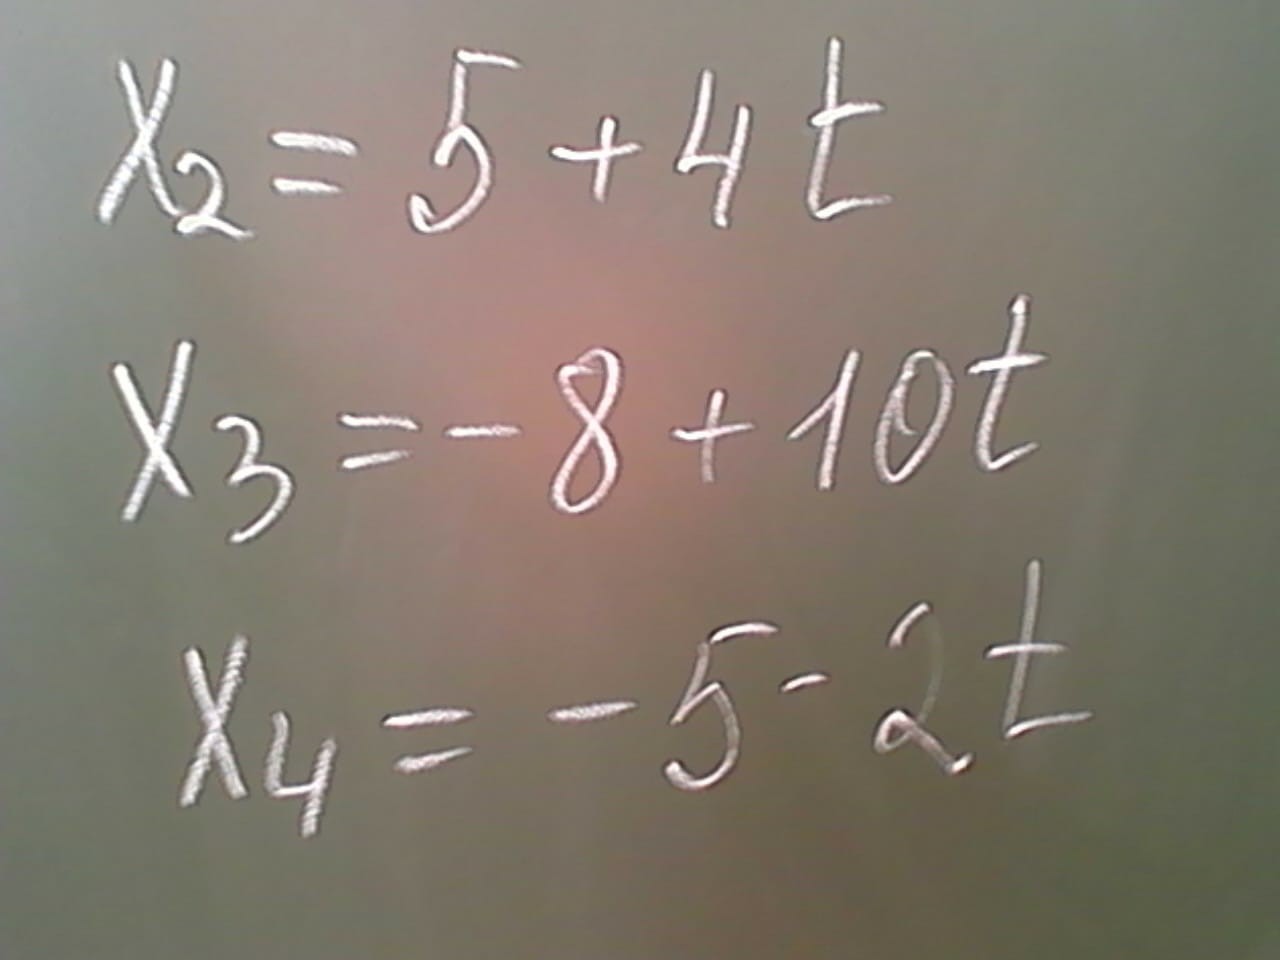 X₂ = 5 + 4t
X₃ = -8 + 10t
X₄ = -5 - 2t